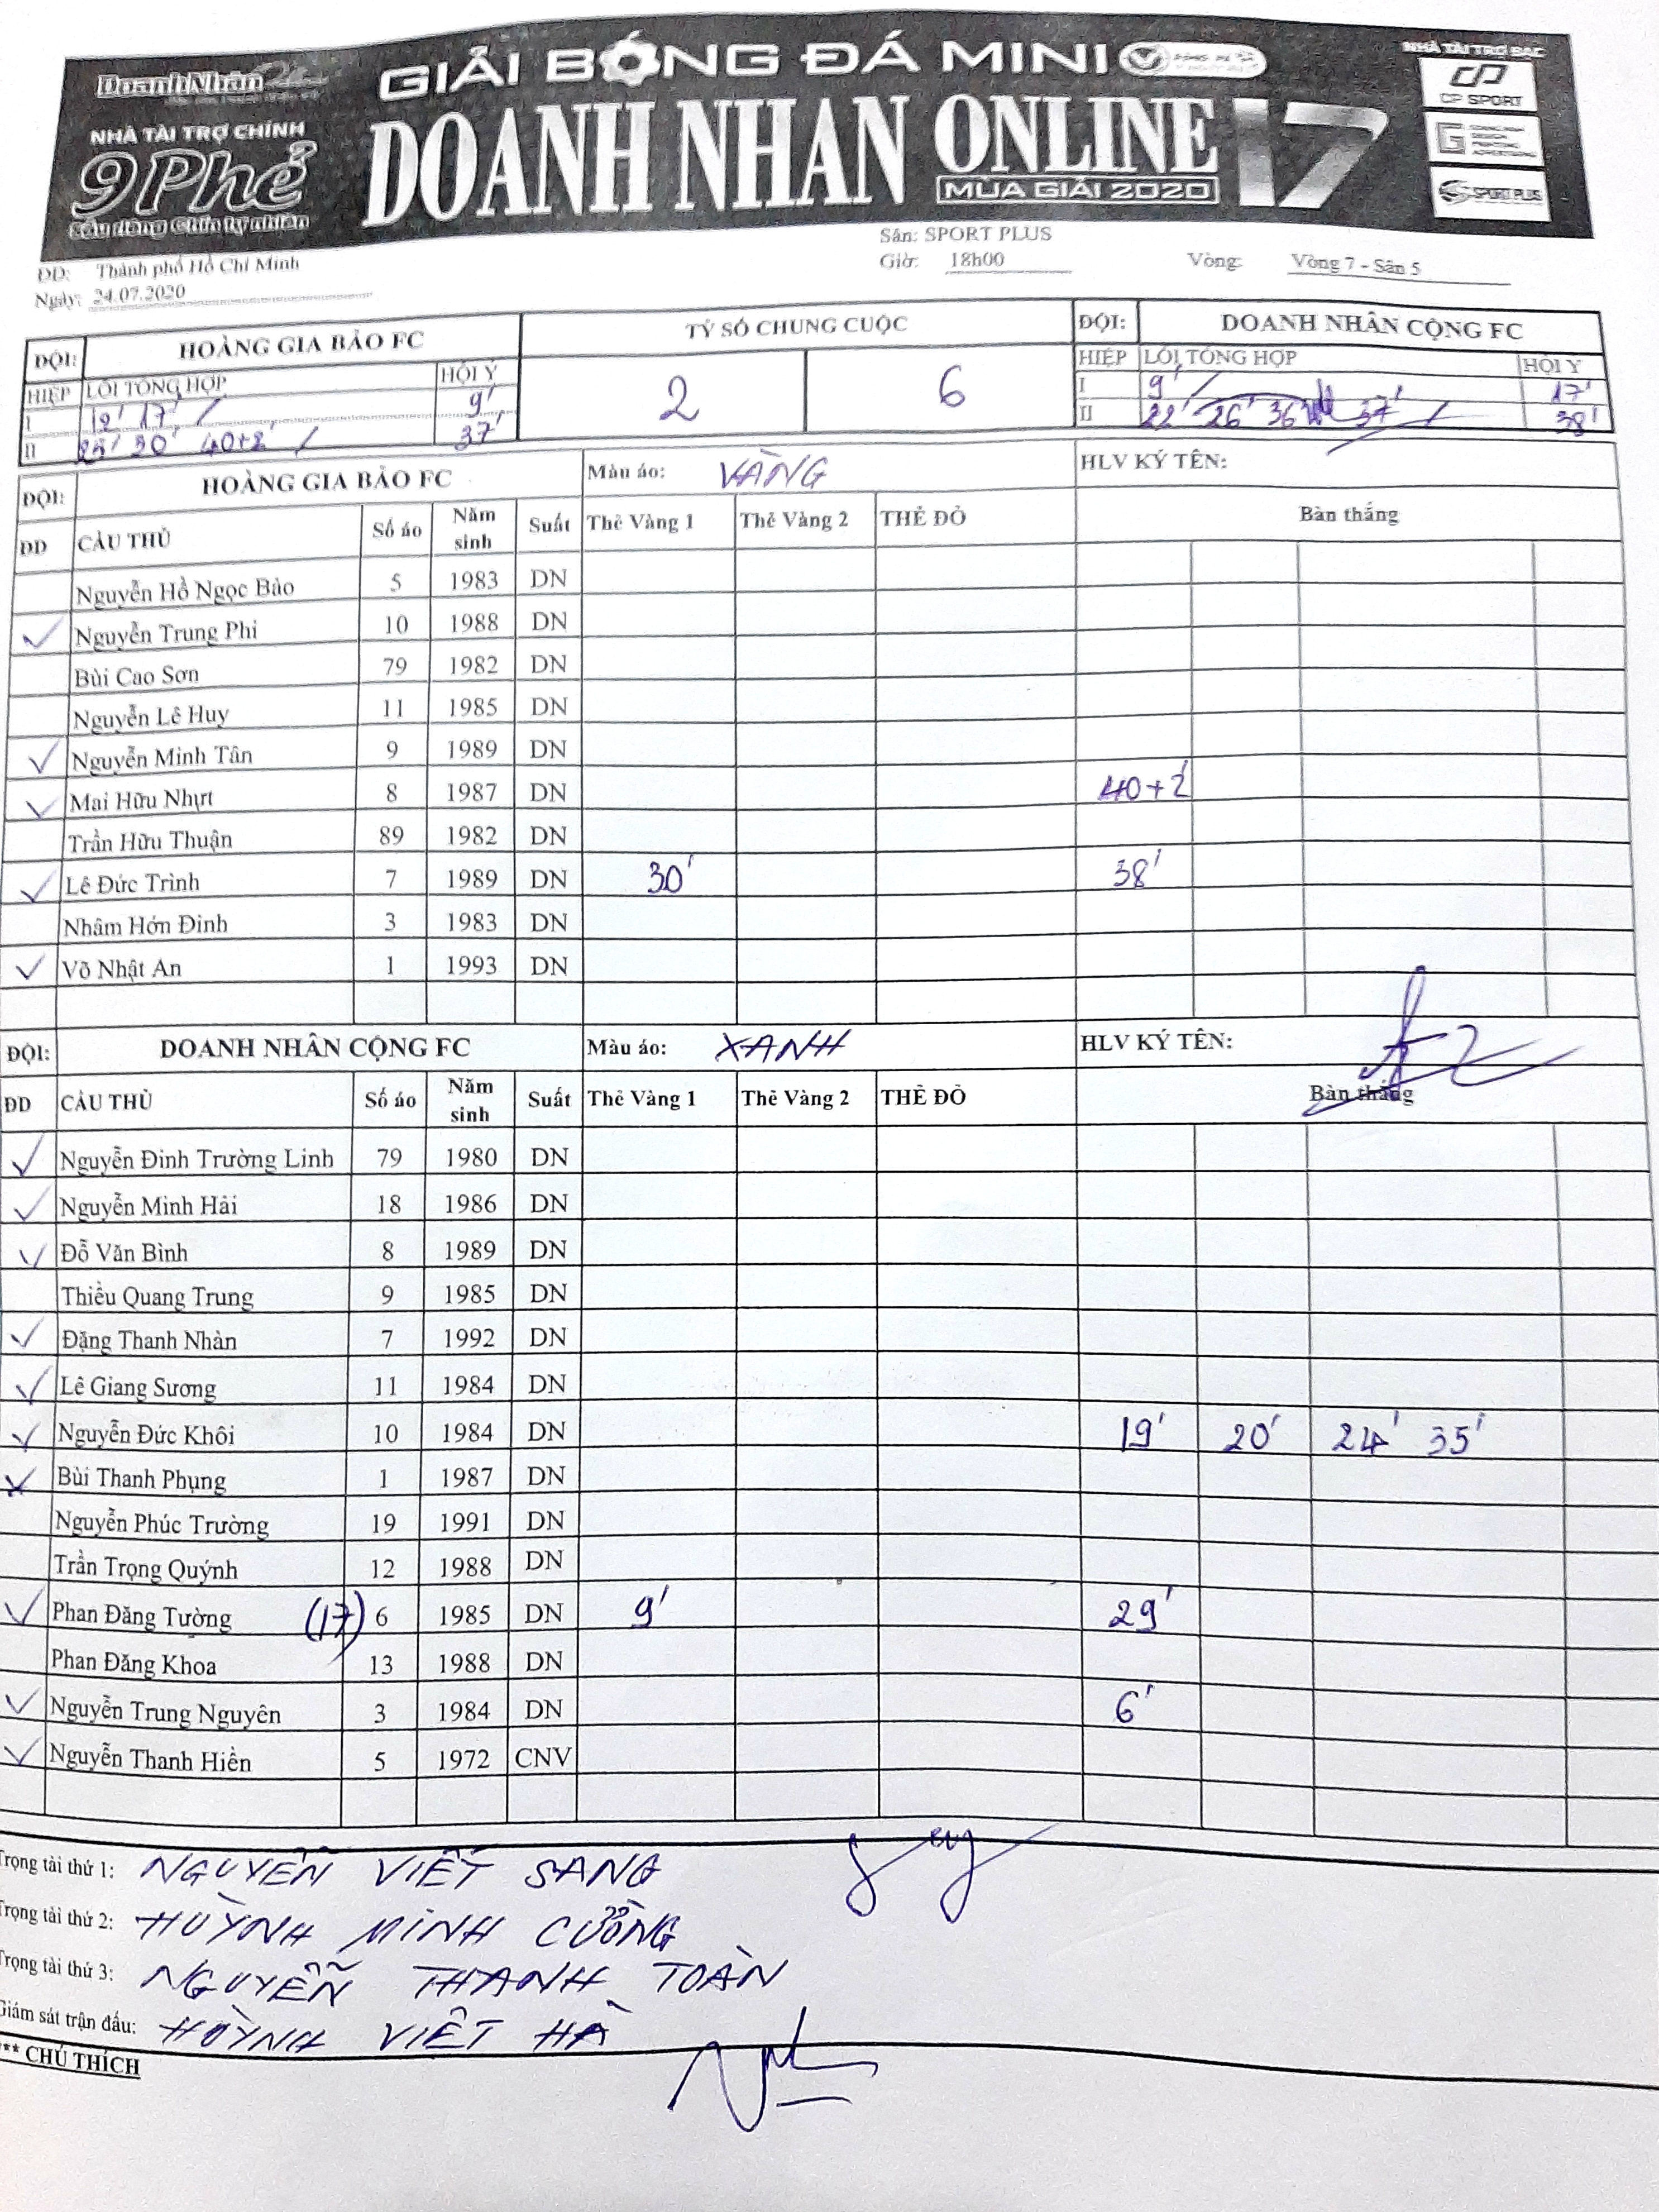 DoanhNhân
GIẢI BÓNG ĐÁ MINI
NHÀ TÀI TRỢ BẠC
CP SPORT
NHÀ TÀI TRỢ CHÍNH
9 Phẻ
DOANH NHAN ONLINE 17
MÙA GIẢI 2020
SPORT PLUS
Sân: SPORT PLUS
ĐĐ: Thành phố Hồ Chí Minh
Giờ: 18h00
Vòng: Vòng 7 - Sân 5
Ngày: 24.07.2020
ĐỘI: HOÀNG GIA BẢO FC TỶ SỐ CHUNG CUỘC ĐỘI: DOANH NHÂN CỘNG FC
HIỆP LỖI TỔNG HỢP HỘI Ý 2 6 HIỆP LỖI TỔNG HỢP HỘI Ý
I 12' 17' / 9' I 9' / 17'
II 25' 30' 40+2' / 37' II 22' 26' 36' 37' / 38'
ĐỘI: HOÀNG GIA BẢO FC Màu áo: VÀNG HLV KÝ TÊN:
ĐD CẦU THỦ Số áo Năm sinh Suất Thẻ Vàng 1 Thẻ Vàng 2 THẺ ĐỎ Bàn thắng
Nguyễn Hồ Ngọc Bảo 5 1983 DN
✓ Nguyễn Trung Phi 10 1988 DN
Bùi Cao Sơn 79 1982 DN
Nguyễn Lê Huy 11 1985 DN
✓ Nguyễn Minh Tân 9 1989 DN
✓ Mai Hữu Nhựt 8 1987 DN 40+2'
Trần Hữu Thuận 89 1982 DN
✓ Lê Đức Trình 7 1989 DN 30' 38'
Nhâm Hớn Đinh 3 1983 DN
✓ Võ Nhật An 1 1993 DN
ĐỘI: DOANH NHÂN CỘNG FC Màu áo: XANH HLV KÝ TÊN:
ĐD CẦU THỦ Số áo Năm sinh Suất Thẻ Vàng 1 Thẻ Vàng 2 THẺ ĐỎ Bàn thắng
✓ Nguyễn Đinh Trường Linh 79 1980 DN
✓ Nguyễn Minh Hải 18 1986 DN
✓ Đỗ Văn Bình 8 1989 DN
Thiều Quang Trung 9 1985 DN
✓ Đặng Thanh Nhàn 7 1992 DN
✓ Lê Giang Sương 11 1984 DN
✓ Nguyễn Đức Khôi 10 1984 DN 19' 20' 24' 35'
✓ Bùi Thanh Phụng 1 1987 DN
Nguyễn Phúc Trường 19 1991 DN
Trần Trọng Quýnh 12 1988 DN
✓ Phan Đăng Tường (17) 6 1985 DN 9' 29'
Phan Đăng Khoa 13 1988 DN
✓ Nguyễn Trung Nguyên 3 1984 DN 6'
✓ Nguyễn Thanh Hiền 5 1972 CNV
Trọng tài thứ 1: NGUYỄN VIẾT SANG
Trọng tài thứ 2: HUỲNH MINH CƯỜNG
Trọng tài thứ 3: NGUYỄN THANH TOÀN
Giám sát trận đấu: HUỲNH VIẾT HÀ
** CHÚ THÍCH